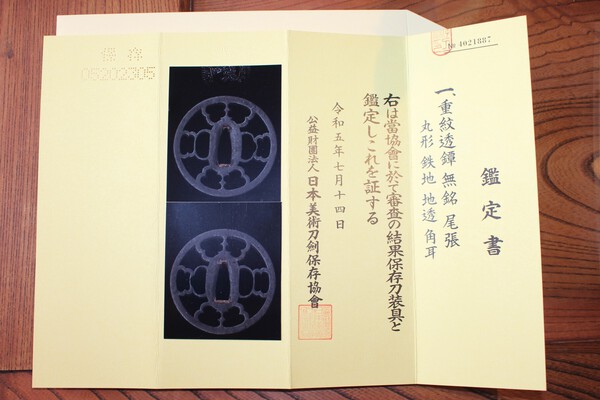 № 4021887
鑑定書
一、重紋透鐔 無銘 尾張
丸形 鉄地 地透 角耳
右は當協會に於て審査の結果保存刀装具と
鑑定しこれを証する
令和五年七月十四日
公益財團法人 日本美術刀劍保存協會
保存
05202305